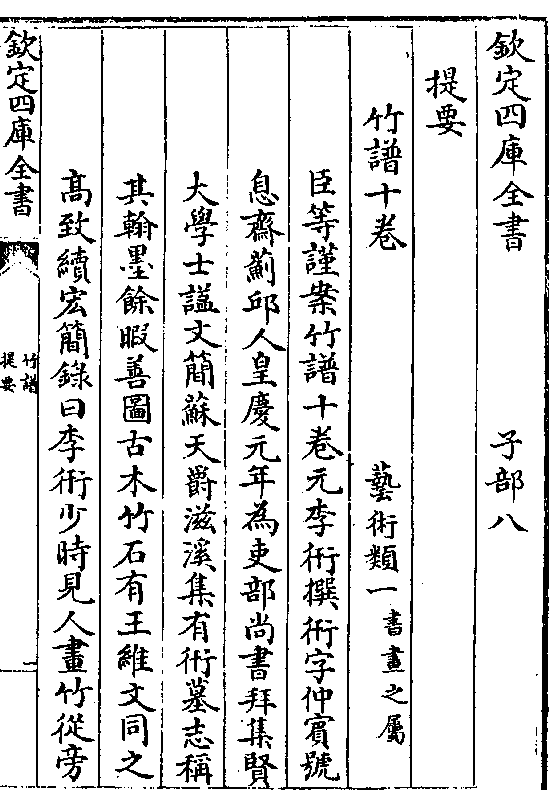 欽定四庫全書 子部八
提要
竹譜十卷 藝術類一書畫之屬
臣等謹案竹譜十卷元李衎撰衎字仲賓號
息齋薊邱人皇慶元年為吏部尚書拜集賢
大學士諡文簡蘇天爵滋溪集有衎墓志稱
其翰墨餘暇善圖古木竹石有王維文同之
高致續宏簡錄曰李衎少時見人畫竹從旁
欽定四庫全書
竹譜
提要
一